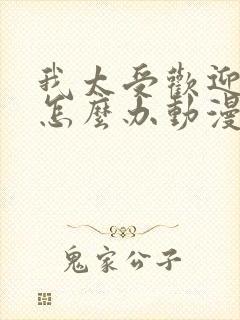 我太受歡迎
怎麼办動漫
鬼家公子